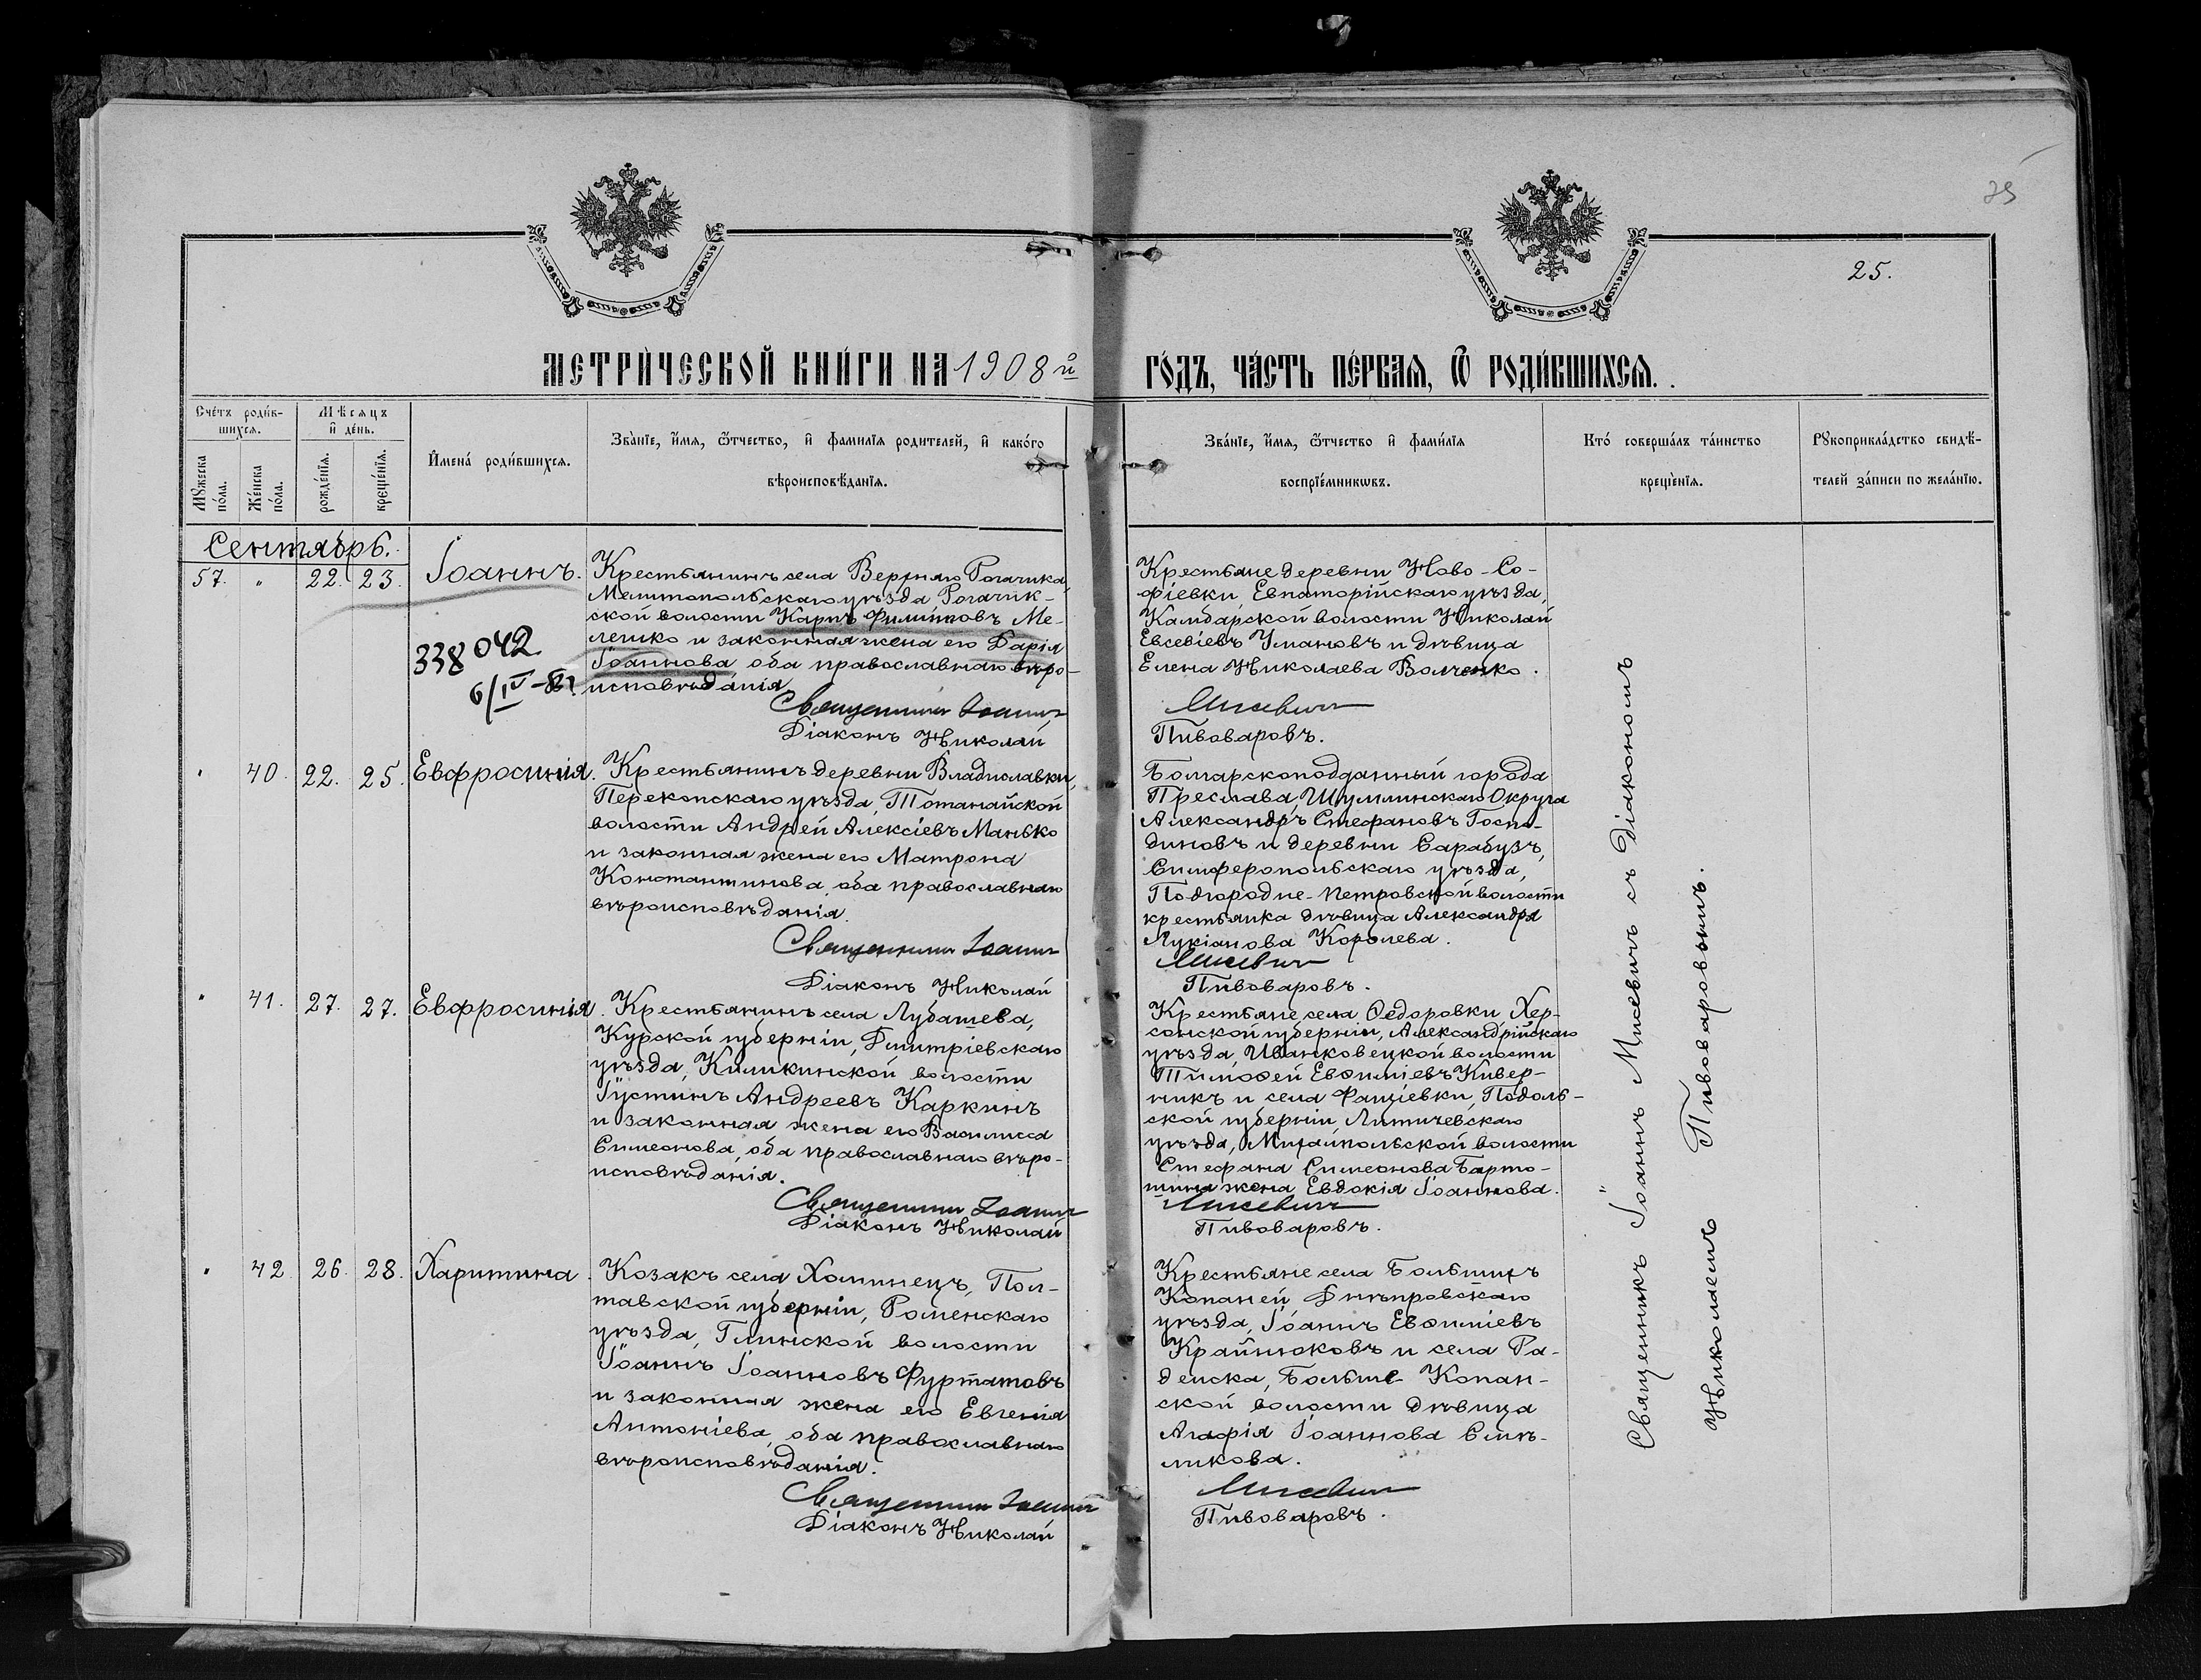 25
25.
МЕТРИ́ЧЕСКОЙ КНИ́ГИ НА 1908й
ГО́ДЪ, ЧА́СТЬ ПЕ́РВАЯ, Ѿ РОДИ́ВШИХСЯ.
Сче́тъ роди́вшихся.
Му́жеска по́ла.
Же́нска по́ла.
Мѣсяцъ и де́нь.
рожде́нїя.
креще́нїя.
Имена́ роди́вшихся.
Зва́нїе, и́мя, ѻ҆́тчество, и фамилїя родителей, и како́го
вѣроисповѣ́данїя.
Зва́нїе, и́мя, ѻ҆́тчество и фами́лїя
воспрїе́мникѡвъ.
Кто́ соверша́лъ та́инство
креще́нїя.
Рꙋкоприкла́дство свидѣ́-
телей за́писи по жела́нїю.
Сентябрь.
57. " 22. 23. Іоаннъ.
Крестьянинъ села Верхняго Рогачика,
Мелитопольскаго уѣзда Рогачик-
ской волости Карпъ Филиповъ Ме-
лешко и законная жена его Дарія
Іоаннова оба православнаго вѣро-
исповѣданія
338042
Священникъ Іоаннъ
Діаконъ Николай
Крестьяне деревни Ново-Со-
фіевки, Евпаторійскаго уѣзда,
Камбарской волости Николай
Евсевіевъ Умановъ и дѣвица
Елена Николаева Волченко.
Мисевичъ
Пивоваровъ.
" 40. 22. 25. Евфросинія.
Крестьянинъ деревни Владиславки,
Перекопскаго уѣзда, Тотанайской
волости Андрей Алексіевъ Манько
и законная жена его Матрона
Константинова, оба православнаго
вѣроисповѣданія.
Священникъ Іоаннъ
Діаконъ Николай
Болгарскоподданный города
Преслава, Шумлинскаго Округа
Александръ Стефановъ Госпо-
диновъ и деревни Сарабузъ,
Симферопольскаго уѣзда,
Подгородне-Петровской волости
крестьянка дѣвица Александра
Лукіанова Королева.
Мисевичъ
Пивоваровъ.
" 41. 27. 27. Евфросинія.
Крестьянинъ села Лубашева,
Курской губерніи, Дмитріевскаго
уѣзда, Киликинской волости
Іустинъ Андреевъ Каркинъ
и законная жена его Василисса
Симеонова, оба православнаго вѣро-
исповѣданія.
Священникъ Іоаннъ
Діаконъ Николай
Крестьяне села Ѳедоровки, Хер-
сонской губерніи, Александрійскаго
уѣзда, Иванковецкой волости
Тимоѳей Евѳиміевъ Кивер-
никъ и села Фащіевки, Подоль-
ской губерніи, Литичевскаго
уѣзда, Михайпольской волости
Стефана Симеонова Барто-
шина жена Евдокія Іоаннова.
Мисевичъ
Пивоваровъ.
" 42 26. 28. Харитина.
Козакъ села Хоминецъ, Пол-
тавской губерніи, Роменскаго
уѣзда, Глинской волости
Іоаннъ Іоанновъ Фуртатовъ
и законная жена его Евгенія
Антоніева, оба православнаго
вѣроисповѣданія.
Священникъ Іоаннъ
Діаконъ Николай
Крестьяне села Большихъ
Копаней Днѣпровскаго
уѣзда, Іоаннъ Евѳиміевъ
Крайнюковъ и села Ра-
денска, Больше-Копан-
ской волости дѣвица
Агафія Іоаннова Смѣ-
ликова.
Мисевичъ
Пивоваровъ.
Священникъ Іоаннъ Мисевичъ съ Діакономъ
Николаемъ Пивоваровымъ.